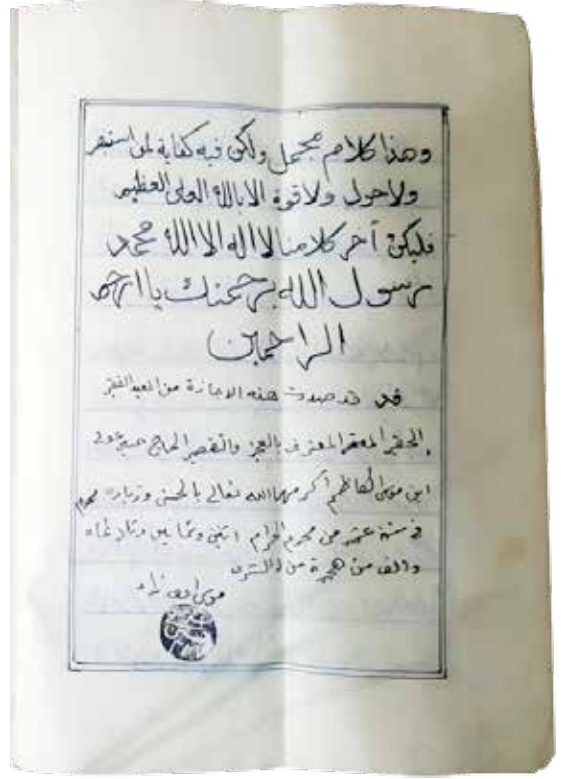 وهذا كلام مجمل ولكن فيه كفاية لمن استبصر
ولا حول ولا قوة الا بالله العلى العظيم
فليكن آخر كلامنا لا اله الا الله محمد
رسول الله برحمتك يا ارحم
الراحمين
قد صدرت هذه الاجازة من العبد الفقير
الحقير المعترف بالعجز والتقصير الحاج
ابن موسى الكاظم اكرمهما الله تعالى بالحسنى وزيادة
في من محرم الحرام اثنى وثمانين وثلاثمائة
والف من هجرة من له الشرف